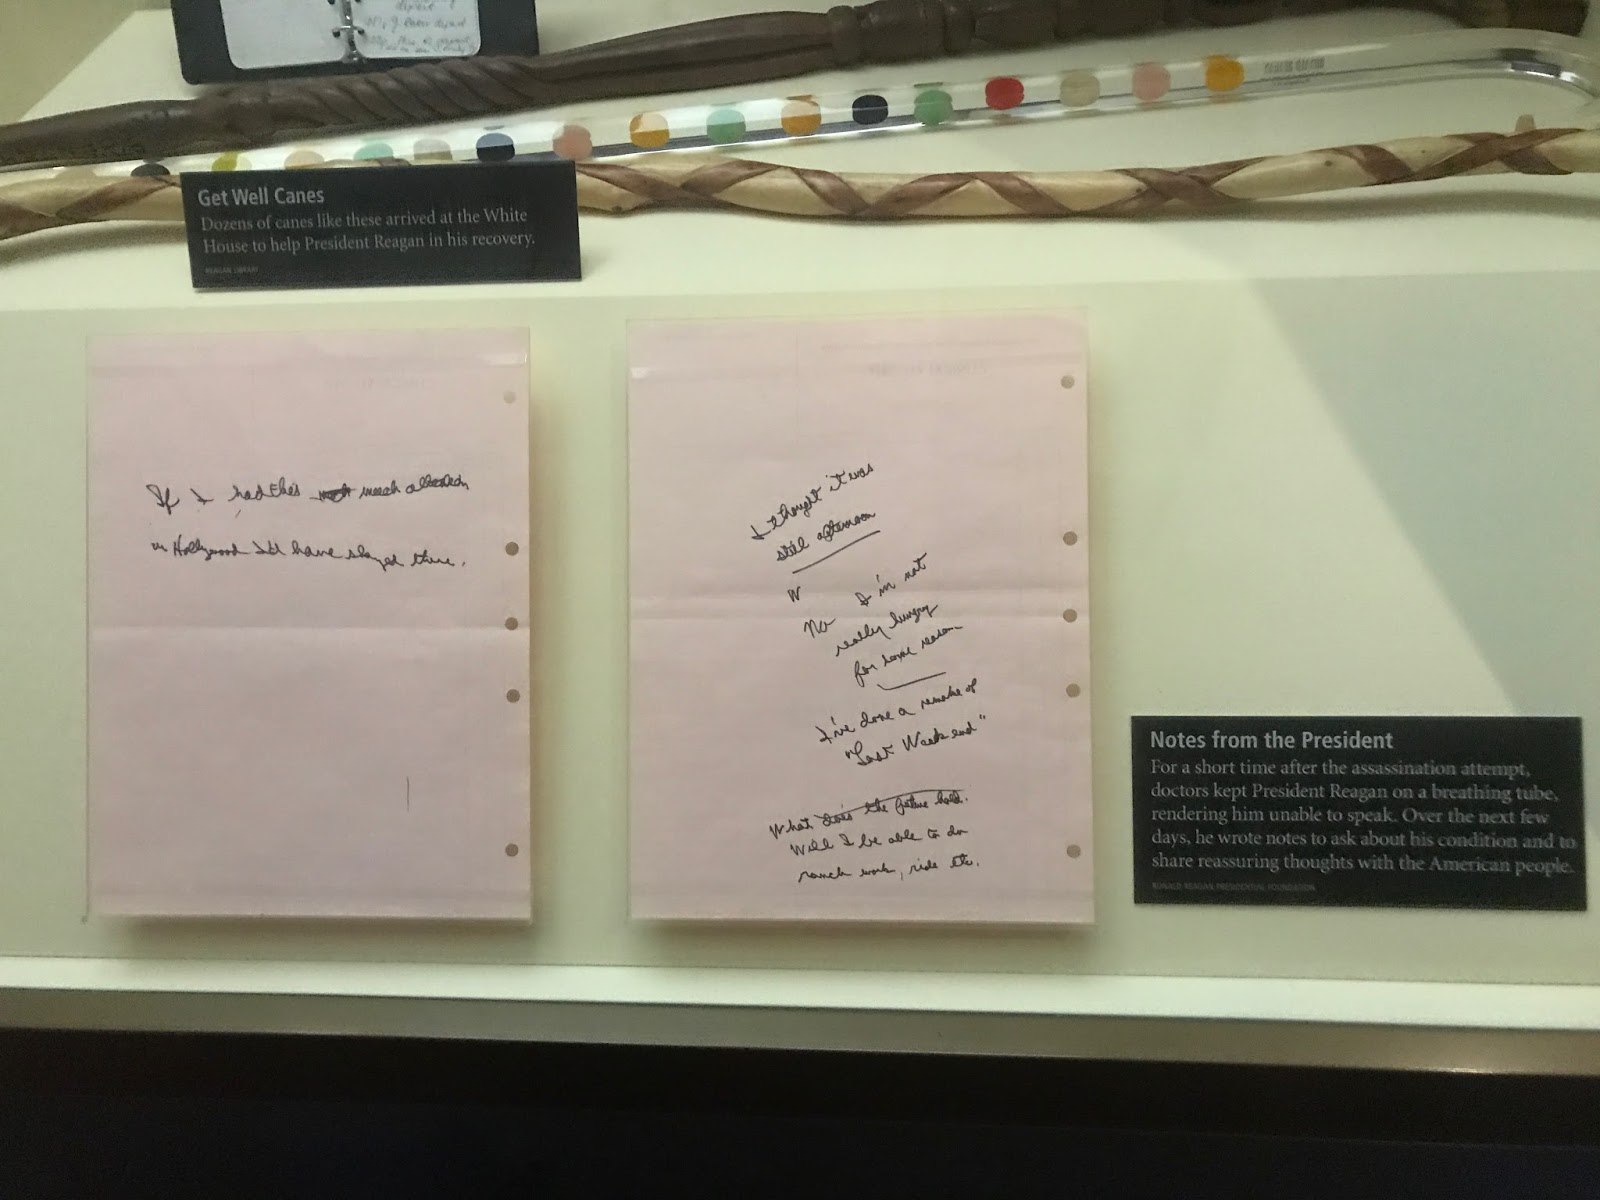 Get Well Canes
Dozens of canes like these arrived at the White
House to help President Reagan in his recovery.
REAGAN LIBRARY
If I had this much attention
in Hollywood I'd have stayed there.
I thought it was
still afternoon
W
No I'm not
really hungry
for some reason
I've done a remake of
"Lost Weekend"
What does the future hold.
Will I be able to do
ranch work, ride etc.
Notes from the President
For a short time after the assassination attempt,
doctors kept President Reagan on a breathing tube,
rendering him unable to speak. Over the next few
days, he wrote notes to ask about his condition and to
share reassuring thoughts with the American people.
RONALD REAGAN PRESIDENTIAL FOUNDATION